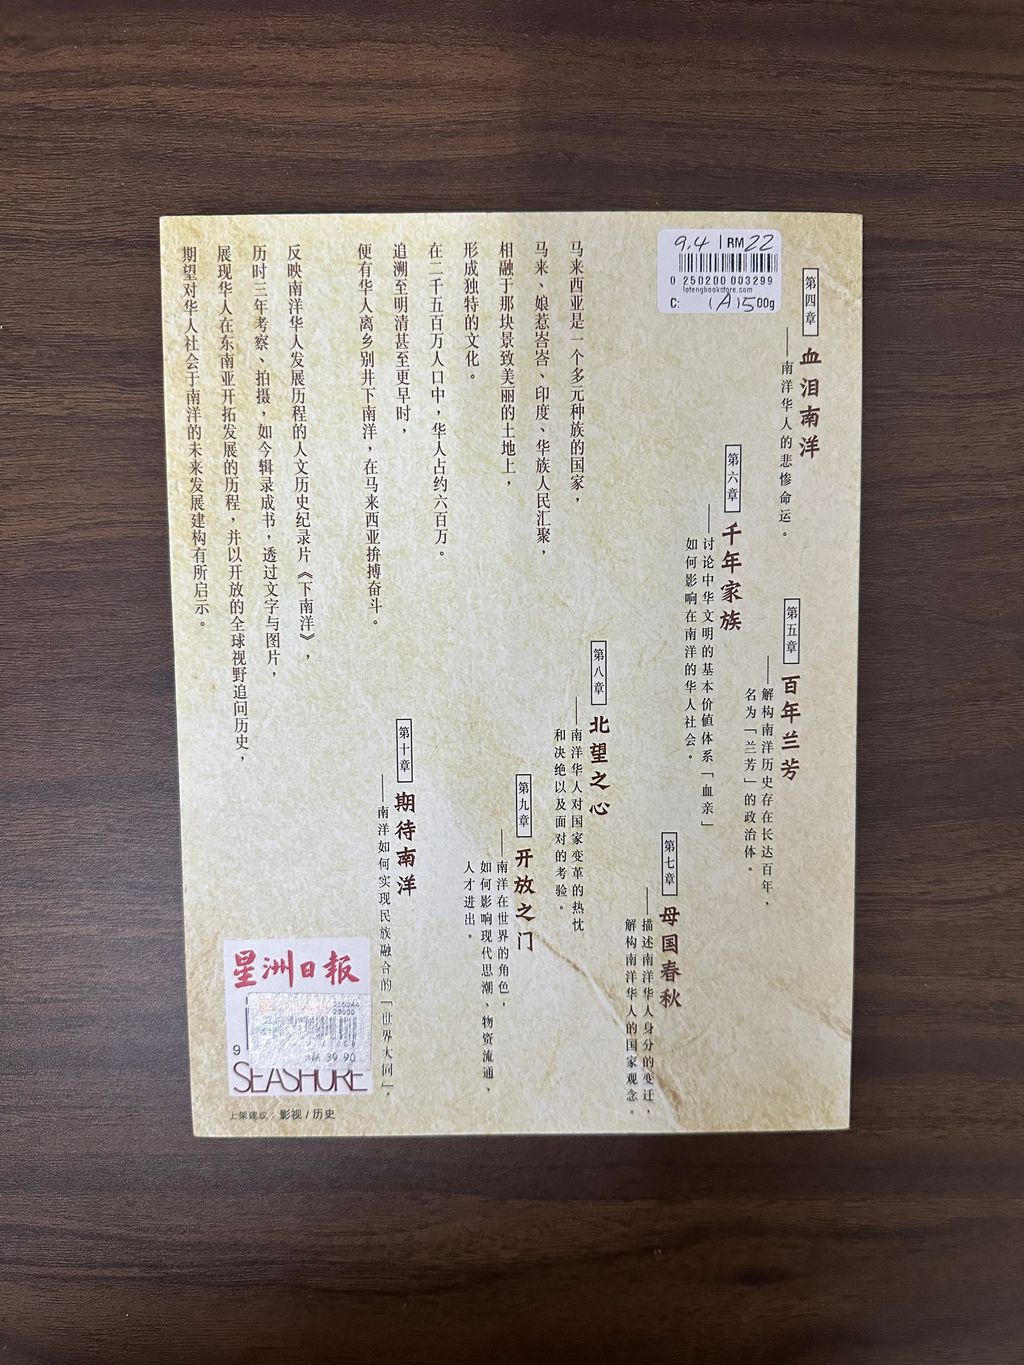 9.4 RM 22
0 250200 003299
lotengbookstore.com
C: (A)1500g
第四章
血泪南洋
——南洋华人的悲惨命运。
第五章
百年兰芳
——解构南洋历史存在长达百年，
名为「兰芳」的政治体。
第六章
千年家族
——讨论中华文明的基本价值体系「血亲」
如何影响在南洋的华人社会。
第七章
母国春秋
——描述南洋华人身分的变迁，
解构南洋华人的国家观念。
第八章
北望之心
——南洋华人对国家变革的热忱
和决绝以及面对的考验。
第九章
开放之门
——南洋在世界的角色，
如何影响现代思潮、物资流通、
人才进出。
第十章
期待南洋
——南洋如何实现民族融合的「世界大同」。
马来西亚是一个多元种族的国家，
马来、娘惹峇峇、印度、华族人民汇聚，
相融于那块景致美丽的土地上，
形成独特的文化。
在二千五百万人口中，华人占约六百万。
追溯至明清甚至更早时，
便有华人离乡别井下南洋，在马来西亚拚搏奋斗。
反映南洋华人发展历程的人文历史纪录片《下南洋》，
历时三年考察、拍摄，如今辑录成书，透过文字与图片，
展现华人在东南亚开拓发展的历程，并以开放的全球视野追问历史，
期望对华人社会于南洋的未来发展建构有所启示。
星洲日報
9
39.90
SEASHORE
上架建议：影视/历史